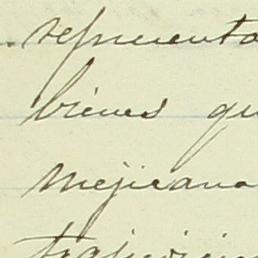 representa
bienes qu
mejicana